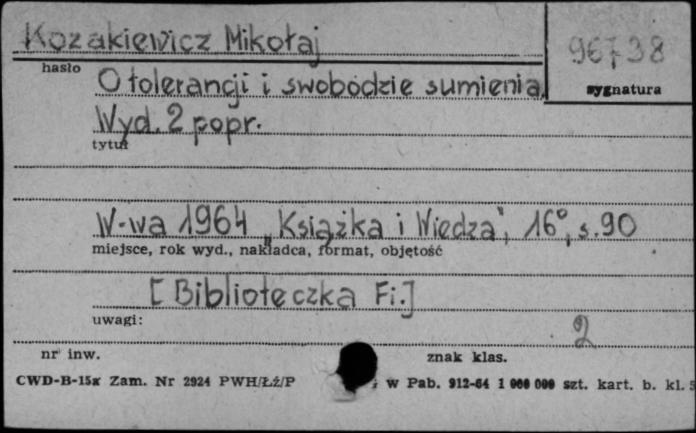 Kozakiewicz Mikołaj
96738
hasło
sygnatura
O tolerancji i swobodzie sumienia.
Wyd. 2 popr.
tytuł
W-wa 1964 „Książka i Wiedza”, 16°, s. 90
miejsce, rok wyd., nakładca, format, objętość
[Biblioteczka Fi.]
uwagi:
2
nr inw.
znak klas.
CWD-B-15x Zam. Nr 2924 PWH/Łż/P w Pab. 912-64 1 000 000 szt. kart. b. kl. 5